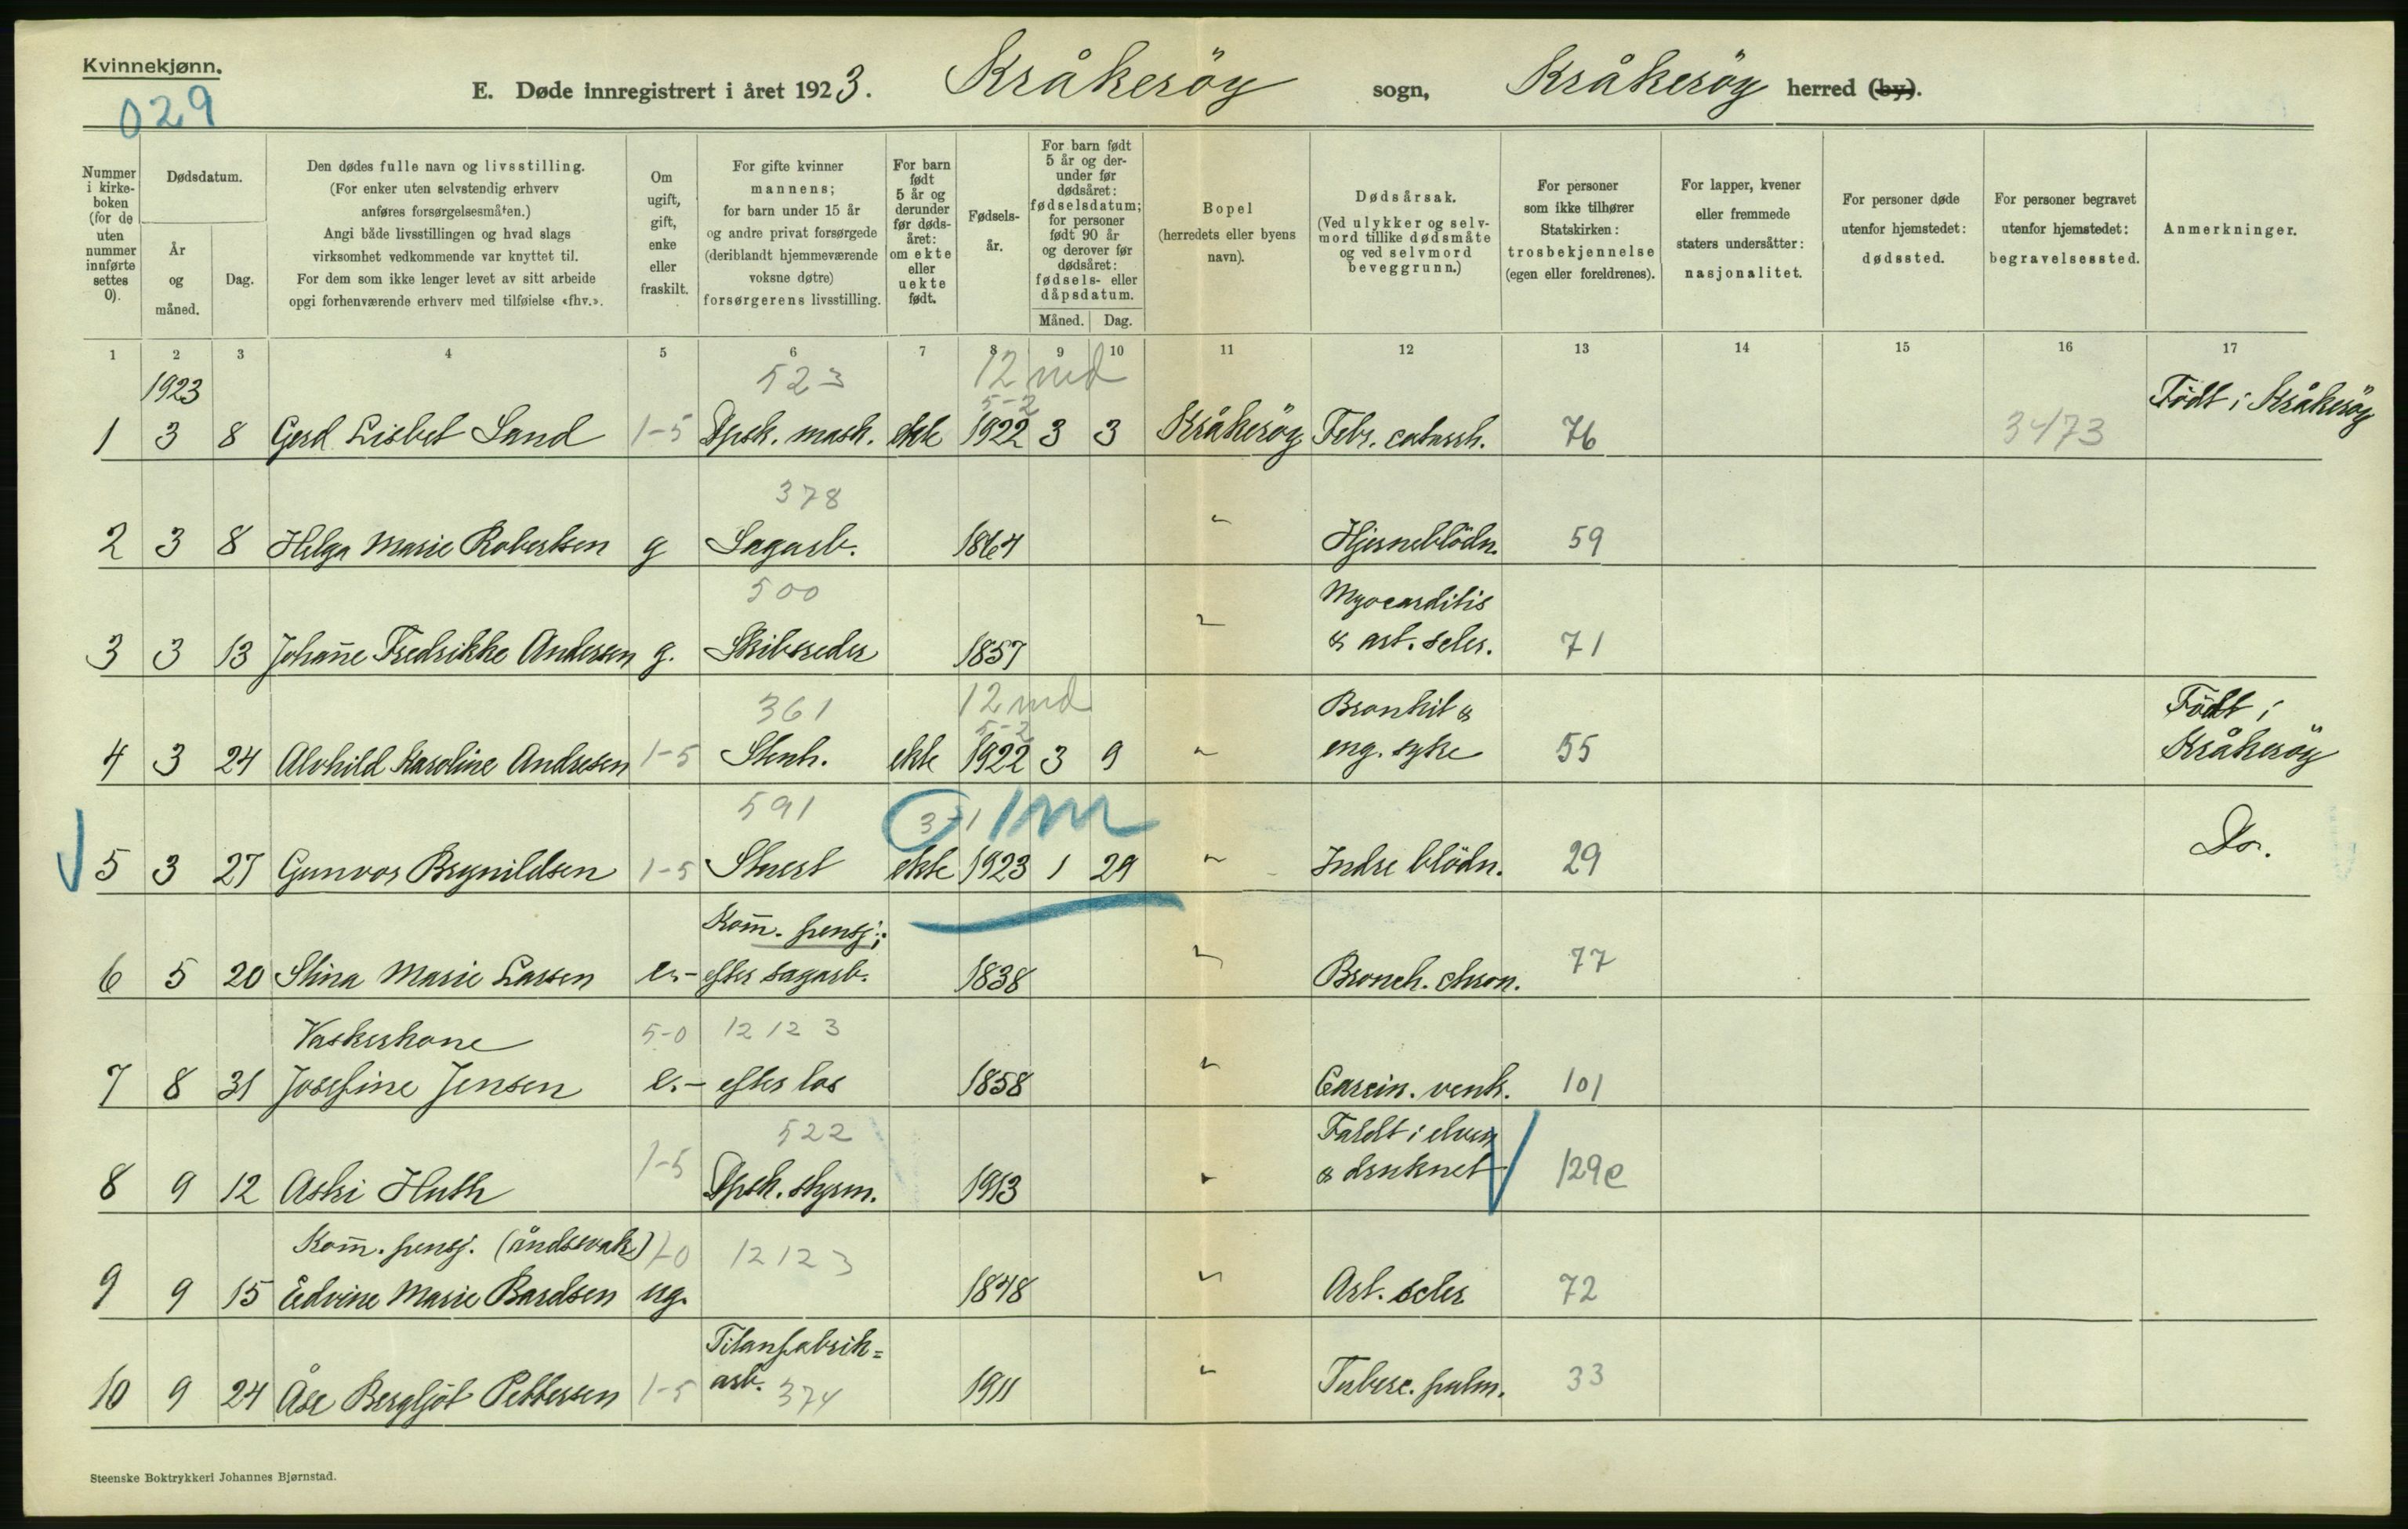 Kvinnekjønn.
029
E. Døde innregistrert i året 1923. Kråkeröy sogn, Kråkeröy herred (by).
Nummer i kirkeboken (for de uten nummer innførte settes 0).
Dødsdatum.
År og måned.
Dag.
Den dødes fulle navn og livsstilling.
(For enker uten selvstendig erhverv anføres forsørgelsesmåten.)
Angi både livsstillingen og hvad slags virksomhet vedkommende var knyttet til.
For dem som ikke lenger levet av sitt arbeide opgi forhenværende erhverv med tilføielse «fhv.».
Om ugift, gift, enke eller fraskilt.
For gifte kvinner mannens; for barn under 15 år og andre privat forsørgede (deriblandt hjemmeværende voksne døtre) forsørgerens livsstilling.
For barn født 5 år og derunder før dødsåret: om ekte eller uekte født.
Fødselsår.
For barn født 5 år og derunder før dødsåret: fødselsdatum; for personer født 90 år og derover før dødsåret: fødsels- eller dåpsdatum.
Måned. Dag.
Bopel (herredets eller byens navn).
Dødsårsak.
(Ved ulykker og selvmord tillike dødsmåte og ved selvmord beveggrunn.)
For personer som ikke tilhører Statskirken: trosbekjennelse (egen eller foreldrenes).
For lapper, kvener eller fremmede staters undersåtter: nasjonalitet.
For personer døde utenfor hjemstedet: dødssted.
For personer begravet utenfor hjemstedet: begravelsessted.
Anmerkninger.
1 2 3 4 5 6 7 8 9 10 11 12 13 14 15 16 17
1923 523 12 md
5-2 Födt i Kråkeröy
1 3 8 Gerd Lisbet Sand 1-5 Dpsk. mask. ekte 1922 3 3 Kråkeröy Febr. catarrh. 76 3473
378
2 3 8 Helga Marie Robertsen g Sagarb. 1864 " Hjerneblödn. 59
500 Myocarditis
3 3 13 Johanne Fredrikke Andersen g. Skibsreder 1857 " & art. scler. 71
361 12 md
5-2 Bronkit & Födt i
4 3 24 Alvhild Karoline Andresen 1-5 Stenh. ekte 1922 3 9 " eng. syke 55 Kråkeröy
591 3-1 1m
5 3 27 Gunvor Brynildsen 1-5 Stuert ekte 1923 1 29 " Indre blödn. 29 Do.
Kom. pensj.;
6 5 20 Stina Marie Larsen e.- efter sagarb. 1838 " Bronch. chron. 77
Vaskerkone 5-0 12 12 3
7 8 31 Josefine Jensen e.- efter los 1858 " Carcin. ventr. 101
522 Faldt i elven
8 9 12 Aski Huth 1-5 Dpsk. styrm. 1913 " & druknet 129e
Kom. pensj. (åndssvak) 1-0 12 12 3
9 9 15 Edvine Marie Bardsen ug. 1848 " Art. scler 72
Titanfabrik=
10 9 24 Åse Bergljöt Pettersen 1-5 arb. 374 1911 " Tuberc. pulm. 33
Steenske Boktrykkeri Johannes Bjørnstad.